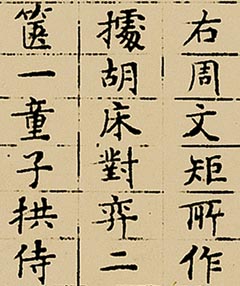 右周文矩所作
據胡床對弈二
篋一童子拱侍